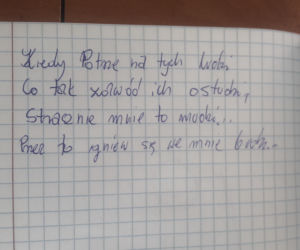 Kiedy Patrze na tych ludzi
Co tak zawód ich ostudzi,
Strasznie mnie to nudzi...
Przez to gniew się we mnie budzi..